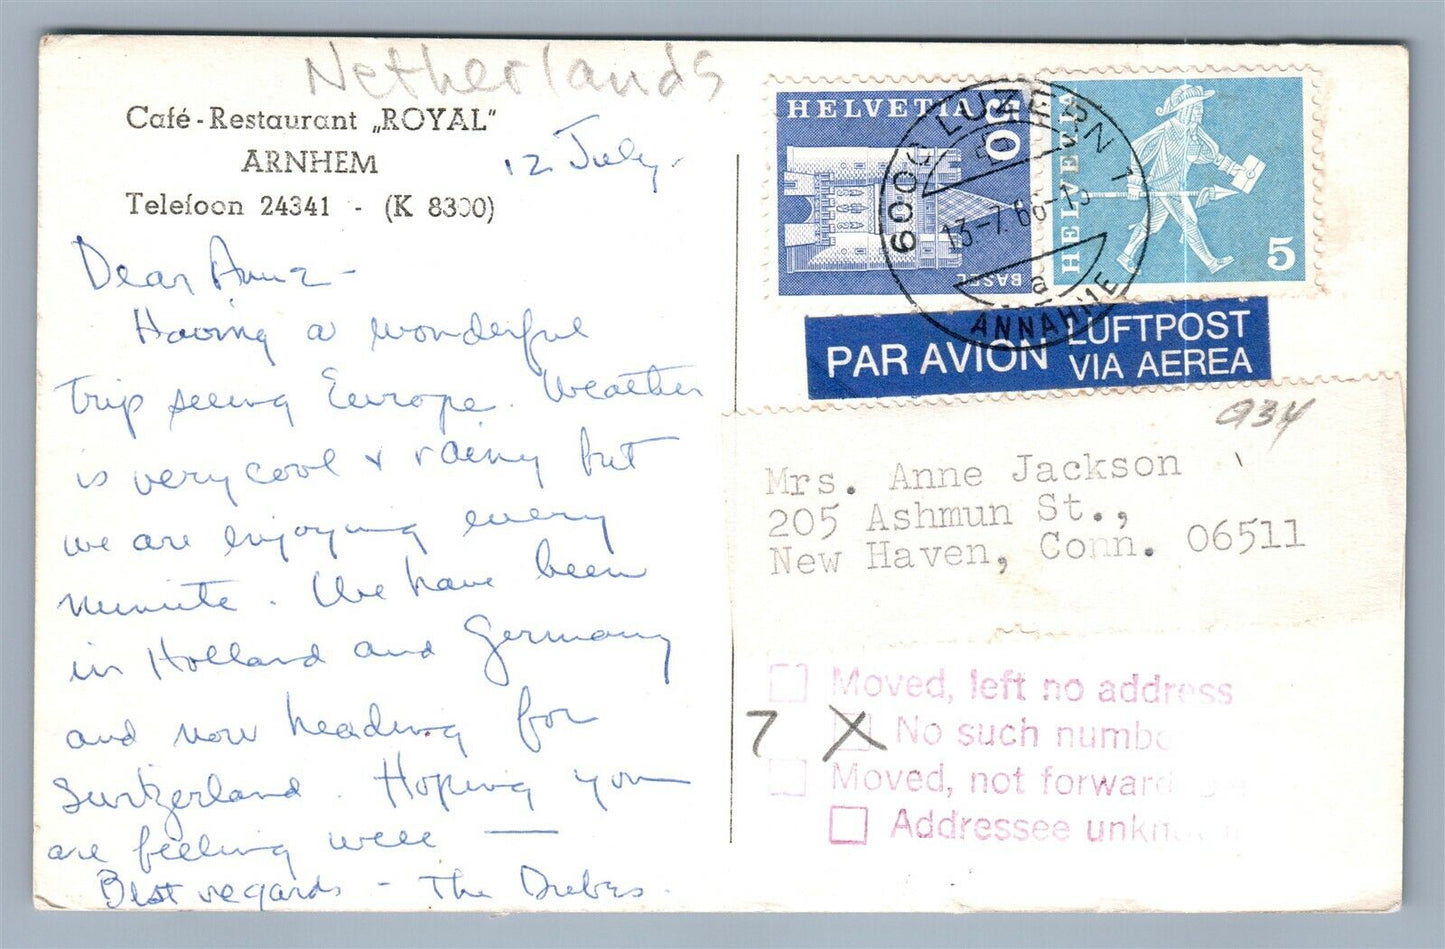 Netherlands
Café-Restaurant „ROYAL"
ARNHEM
Telefoon 24341 - (K 8300)
12 July.
Dear Anne -
Having a wonderful
trip seeing Europe. Weather
is very cool & rainy but
we are enjoying every
minute. We have been
in Holland and Germany
and now heading for
Switzerland. Hoping you
are feeling well —
Best regards - The Dubes.
HELVETIA
50
BASEL
HELVETIA
HELVETIA
5
6000 LUZERN 1
13-7.66-19
a
ANNAHME
PAR AVION LUFTPOST
VIA AEREA
934
Mrs. Anne Jackson
205 Ashmun St.,
New Haven, Conn. 06511
Moved, left no address
7 X No such numbe
Moved, not forward
Addressee unknown